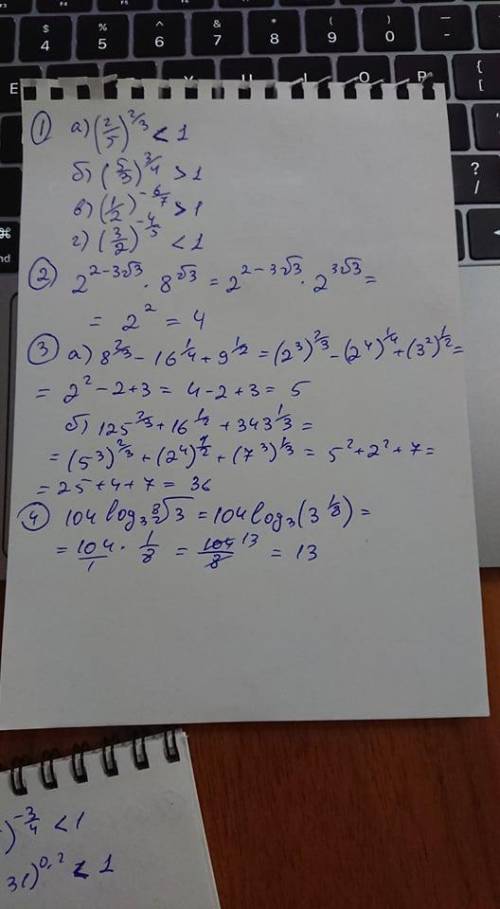 $ % ^ & * ( ) —
4 5 6 7 8 9 0 -
E Y U I O P { [
? /
1 а) (2/5)^2/3 < 1
б) (5/3)^3/4 > 1
в) (1/2)^-6/7 > 1
г) (3/2)^-4/5 < 1
2 2^2-3√3 · 8^√3 = 2^2-3√3 · 2^3√3 =
= 2^2 = 4
3 а) 8^2/3 - 16^1/4 + 9^1/2 = (2^3)^2/3 - (2^4)^1/4 + (3^2)^1/2 =
= 2^2 - 2 + 3 = 4 - 2 + 3 = 5
б) 125^2/3 + 16^1/2 + 343^1/3 =
= (5^3)^2/3 + (2^4)^1/2 + (7^3)^1/3 = 5^2 + 2^2 + 7 =
= 25 + 4 + 7 = 36
4 104 log_3 ⁸√3 = 104 log_3 (3^1/8) =
= 104/1 · 1/8 = 104/8 13 = 13
)^-3/4 < 1
31)^0,2 < 1